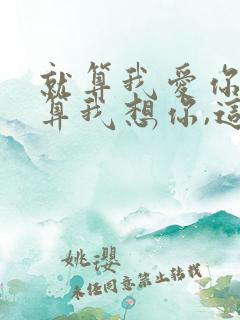 就算我爱你
算我想你,這
姚瓔
未任同意禁止转载